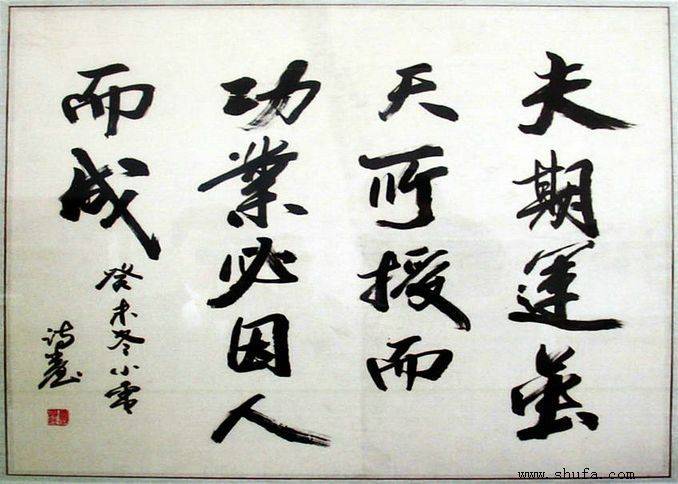 夫期運虽
天所授而
功業必因人
而成
癸未冬小雪
www.shufa.com